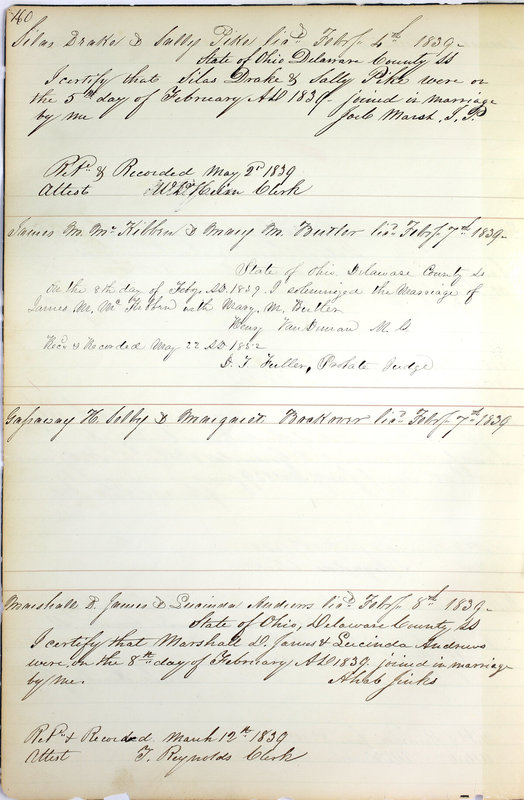 160
Silas Drake & Sally Pike lic'd Feb'y 4th 1839-
State of Ohio Delaware County ss
I certify that Silas Drake & Sally Pike were on
the 5th day of February AD 1839- joined in marriage
by me Joel Marsh, J. P.
& Recorded May 2d 1839
Attest Clerk
James M. McKibben & Mary M. Butler lic'd Feb'y 7th 1839-
State of Ohio, Delaware County ss
On the 8th day of Feby. AD. 1839. I solemnized the Marriage of
James M. McKibben with Mary. M. Butler
Henry Van M. G
Rec'd & Recorded May 22 AD 1852
D. T. Fuller, Probate Judge
H. Selby & lic'd Feb'y 7th 1839
Marshall D. James & Lucinda Andrews lic'd Feb'y 8th 1839-
State of Ohio, Delaware County, ss
I certify that Marshall D. James & Lucinda Andrews
were, on the 8th day of February AD 1839. joined in marriage
by me. Ahab Jinks
& Recorded March 12th 1839
Attest T. Reynolds Clerk